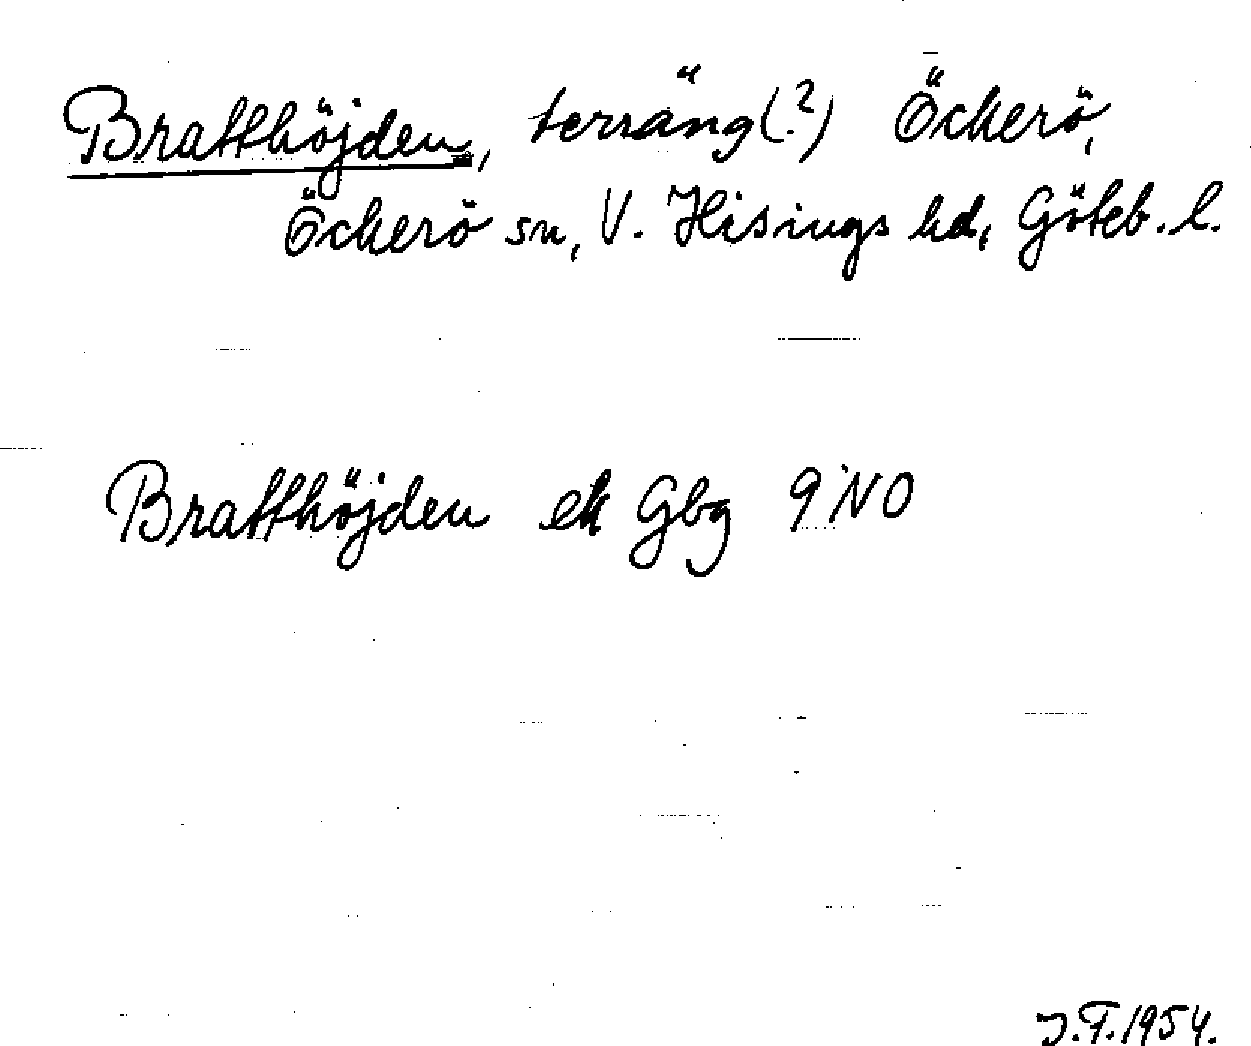 Bratthöjden, terräng(?) Öckerö,
Öckerö sn, V. Hisings hd, Göteb. l.
Bratthöjden ek Gbg 9 NO
J.F. 1954.